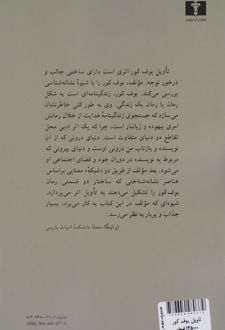 انتشارات نیلوفر
تأویل بوف کور اثری است دارای ساختی جالب و
درخور توجه. مؤلف، بوف کور را با شیوهٔ نشانه‌شناسی
بررسی می‌کند. بوف کور، زندگینامه‌ای است به شکل
رمان یا رمان یک زندگی. وی به طور کلی خاطرنشان
می‌سازد که جستجوی زندگینامهٔ هدایت از خلال رمانش
امری بیهوده و زیانبار است، چرا که یک اثر ادبی محل
تقاطع دو دنیای متفاوت است. دنیای درونی که از آنِ
نویسنده و بازتاب منِ درونی اوست و دنیای بیرونی که
مربوط به نویسنده در دوران خود و فضای اجتماعی او
می‌شود. بعد مؤلف از طریق دو شبکهٔ معنایی براساس
عناصر نشانه‌شناختی که ساختار دو قسمتی رمان
بوف‌کور را تشکیل می‌دهند به تأویل اثر می‌پردازد.
شیوه‌ای که مؤلف در این کتاب به کار می‌برد، بسیار
جذاب و پربار به نظر می‌رسد.
مجلهٔ دانشکدهٔ ادبیات پاریس
تاویل بوف کور